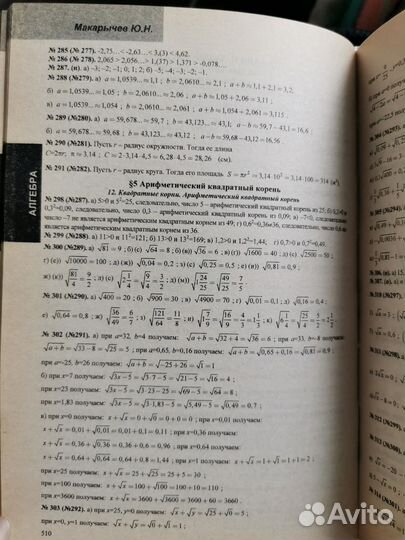 Макарычев Ю.Н.
АЛГЕБРА
№ 285 (№ 277). -2,75...< -2,63...< 3,(3) < 4,62.
№ 286 (№ 278). 2,065 > 2,056...> 1,(37) > 1,371 > -0,078....
№ 287. (н). а) –3; –2; –1; 0; 1; 2; б) –5; –4; –3; –2; –1.
№ 288 (№ 279). а) a = 1,0539...≈1,1 ; b = 2,0610...≈2,1 ; a+b≈1,1+2,1=3,2;
б) a = 1,0539...≈1,05 ; b = 2,0610...≈2,06 ; a+b≈1,05+2,06=3,11 ;
в) a = 1,0539...≈1,054 ; b = 2,0610...≈2,061 ; a+b≈1,054+2,061=3,115 .
№ 289 (№ 280). а) a = 59,678...≈59,7 ; b = 43,123...≈43,1; a-b≈59,7-43,1=16,6 ;
б) a = 59,678...≈59,68 ; b = 43,123...≈43,12 ; a-b≈59,68-43,12=16,56
№ 290 (№ 281). Пусть r – радиус окружности. Тогда ее длина
C=2πr; π≈3,14 ; C≈2·3,14·4,5≈6,28·4,5≈28,26 (см).
№ 291 (№ 282). Пусть r – радиус круга. Тогда его площадь S=πr²≈3,14·10²≈3,14·100≈314 (м²).
§5 Арифметический квадратный корень
12. Квадратные корни. Арифметический квадратный корень
№ 298 (№ 287). а) 5>0 и 5²=25, следовательно, число 5 – арифметический квадратный корень из 25; б) 0,3>0,
0,3²=0,09, следовательно, 0,3 – арифметический квадратный корень из 0,09; в) –7<0, следовательно,
число –7 не является арифметическим квадратным корнем из 49; г) 0,6²=0,36≠36, следовательно, 0,6 не
является арифметическим квадратным корнем из 36.
№ 299 (№ 288). а) 11>0 и 11²=121; б) 13>0 и 13²=169; в) 1,2>0 и 1,2²=1,44; г) 0,7>0 и 0,7²=0,49.
№ 300 (№ 289). а) √81 = 9 ; б) (с) √64 = 8 ; б) (н)) √36 = 6 ; в) (г)) √1600 = 40 ; г) (с) √2500 = 50 ;
г) (с)) √10000 = 100 ; д) (н)) √0,04 = 0,2 ; д) (с) √0,25 = 0,5 ; е) (н)) √0,81 = 0,9 ;
ж) (к)) √(81/4) = 9/2 ; з) (с) √(2 1/4) = √(9/4) = 3/2 ; з) (м)) √(24/25)
№ 301 (№ 290). а) √400 = 20 ; б) √900 = 30 ; в) √4900 = 70 ; г) √0,01 = 0,1 ; д) √0,04 = 0,2 ;
е) √0,64 = 0,8 ; ж) √(36/49) = 6/7 ; з) √(121/64) = 11/8 ; и) √(7/9) = √(16/9) = 4/3 = 1 1/3 ; к) √(6 1/4) = √(25/4) = 5/2
№ 302 (№ 291). а) при a=32, b=4 получаем: √a+b = √32+4 = √36 = 6 ; при a=33, b=-8 получаем:
√a+b = √33-8 = √25 = 5 ; при a=0,65, b=0,16 получаем: √a+b = √0,65+0,16 = √0,81 = 0,9 ;
при a=-25, b=26 получаем: √a+b = √-25+26 = √1 = 1
б) при x=7 получаем: √3x-5 = √3·7-5 = √21-5 = √16 = 4 ;
при x=23 получаем: √3x-5 = √3·23-25 = √69-5 = √64 = 8 ;
при x=1,83 получаем: √3x-5 = √3·1,83-5 = √5,49-5 = √0,49 = 0,7 ;
в) при x=0 получаем: x+√x = 0+√0 = 0+0 = 0 ; при x=0,01 получаем:
x+√x = 0,01+√0,01 = 0,01+0,1 = 0,11 ; при x=0,36 получаем:
x+√x = 0,36+√0,36 = 0,36+0,6 = 0,96 ; при x=0,64 получаем:
x+√x = 0,64+√0,64 = 0,64+0,8 = 1,44 ; при x=1 получаем: x+√x = 1+√1 = 1+1 = 2 ;
при x=25 получаем: x+√x = 25+√25 = 25+5 = 30 ;
при x=100 получаем: x+√x = 100+√100 = 100+10 = 110 ;
при x=3600 получаем: x+√x = 3600+√3600 = 3600+60 = 3660 .
№ 303 (№292). а) при x=25, y=0 получаем: √x+√y = √25+√0 = 5 ;
при x=0, y=1 получаем: √x+√y = √0+√1 = 1 ;
510
Avito